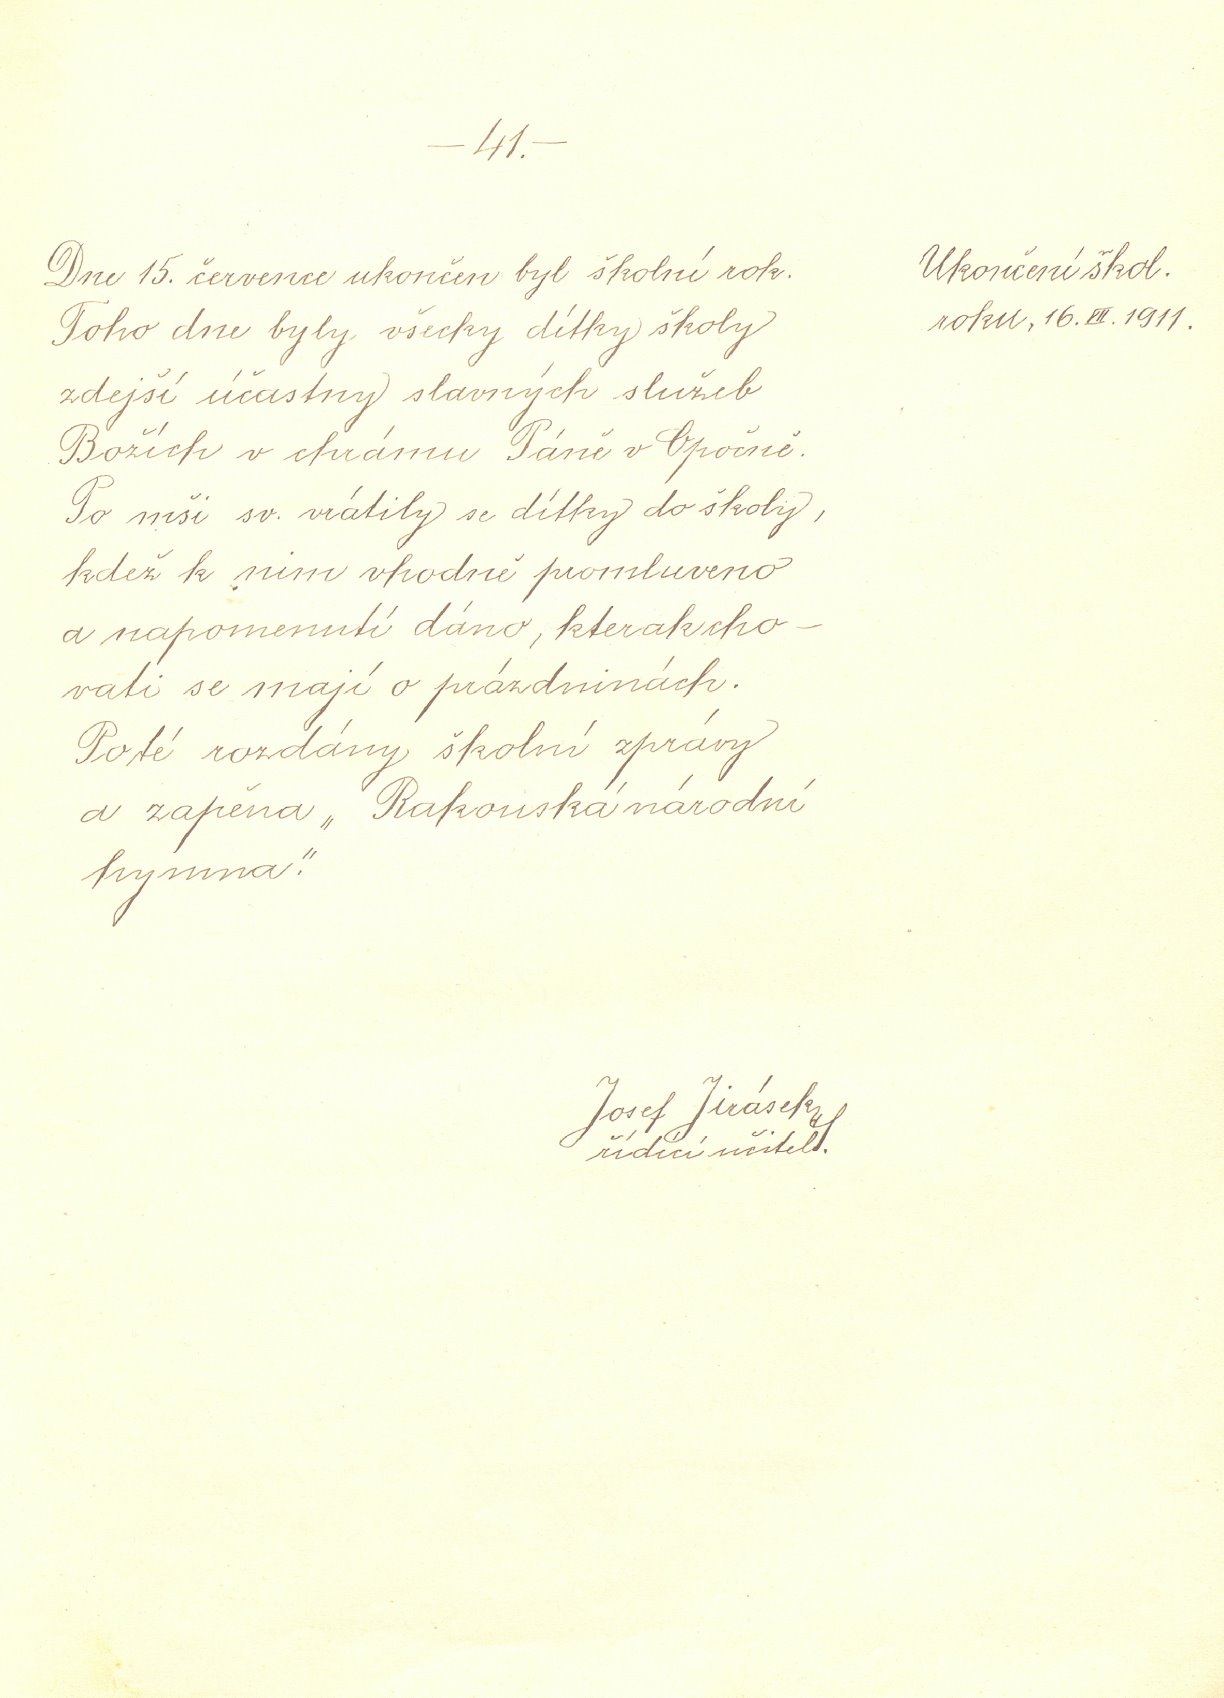 — 41. —
Dne 15. července ukončen byl školní rok.
Toho dne byly všecky dítky školy
zdejší účastny slavných služeb
Božích v chrámu Páně v Opočně.
Po mši sv. vrátily se dítky do školy,
kdež k nim vhodně promluveno
a napomenutí dáno, kterak cho-
vati se mají o prázdninách.
Poté rozdány školní zprávy
a zapěna „Rakouská národní
hymna."
Ukončení škol.
roku, 16. VII. 1911.
Josef Jirásek
řídící učitel.